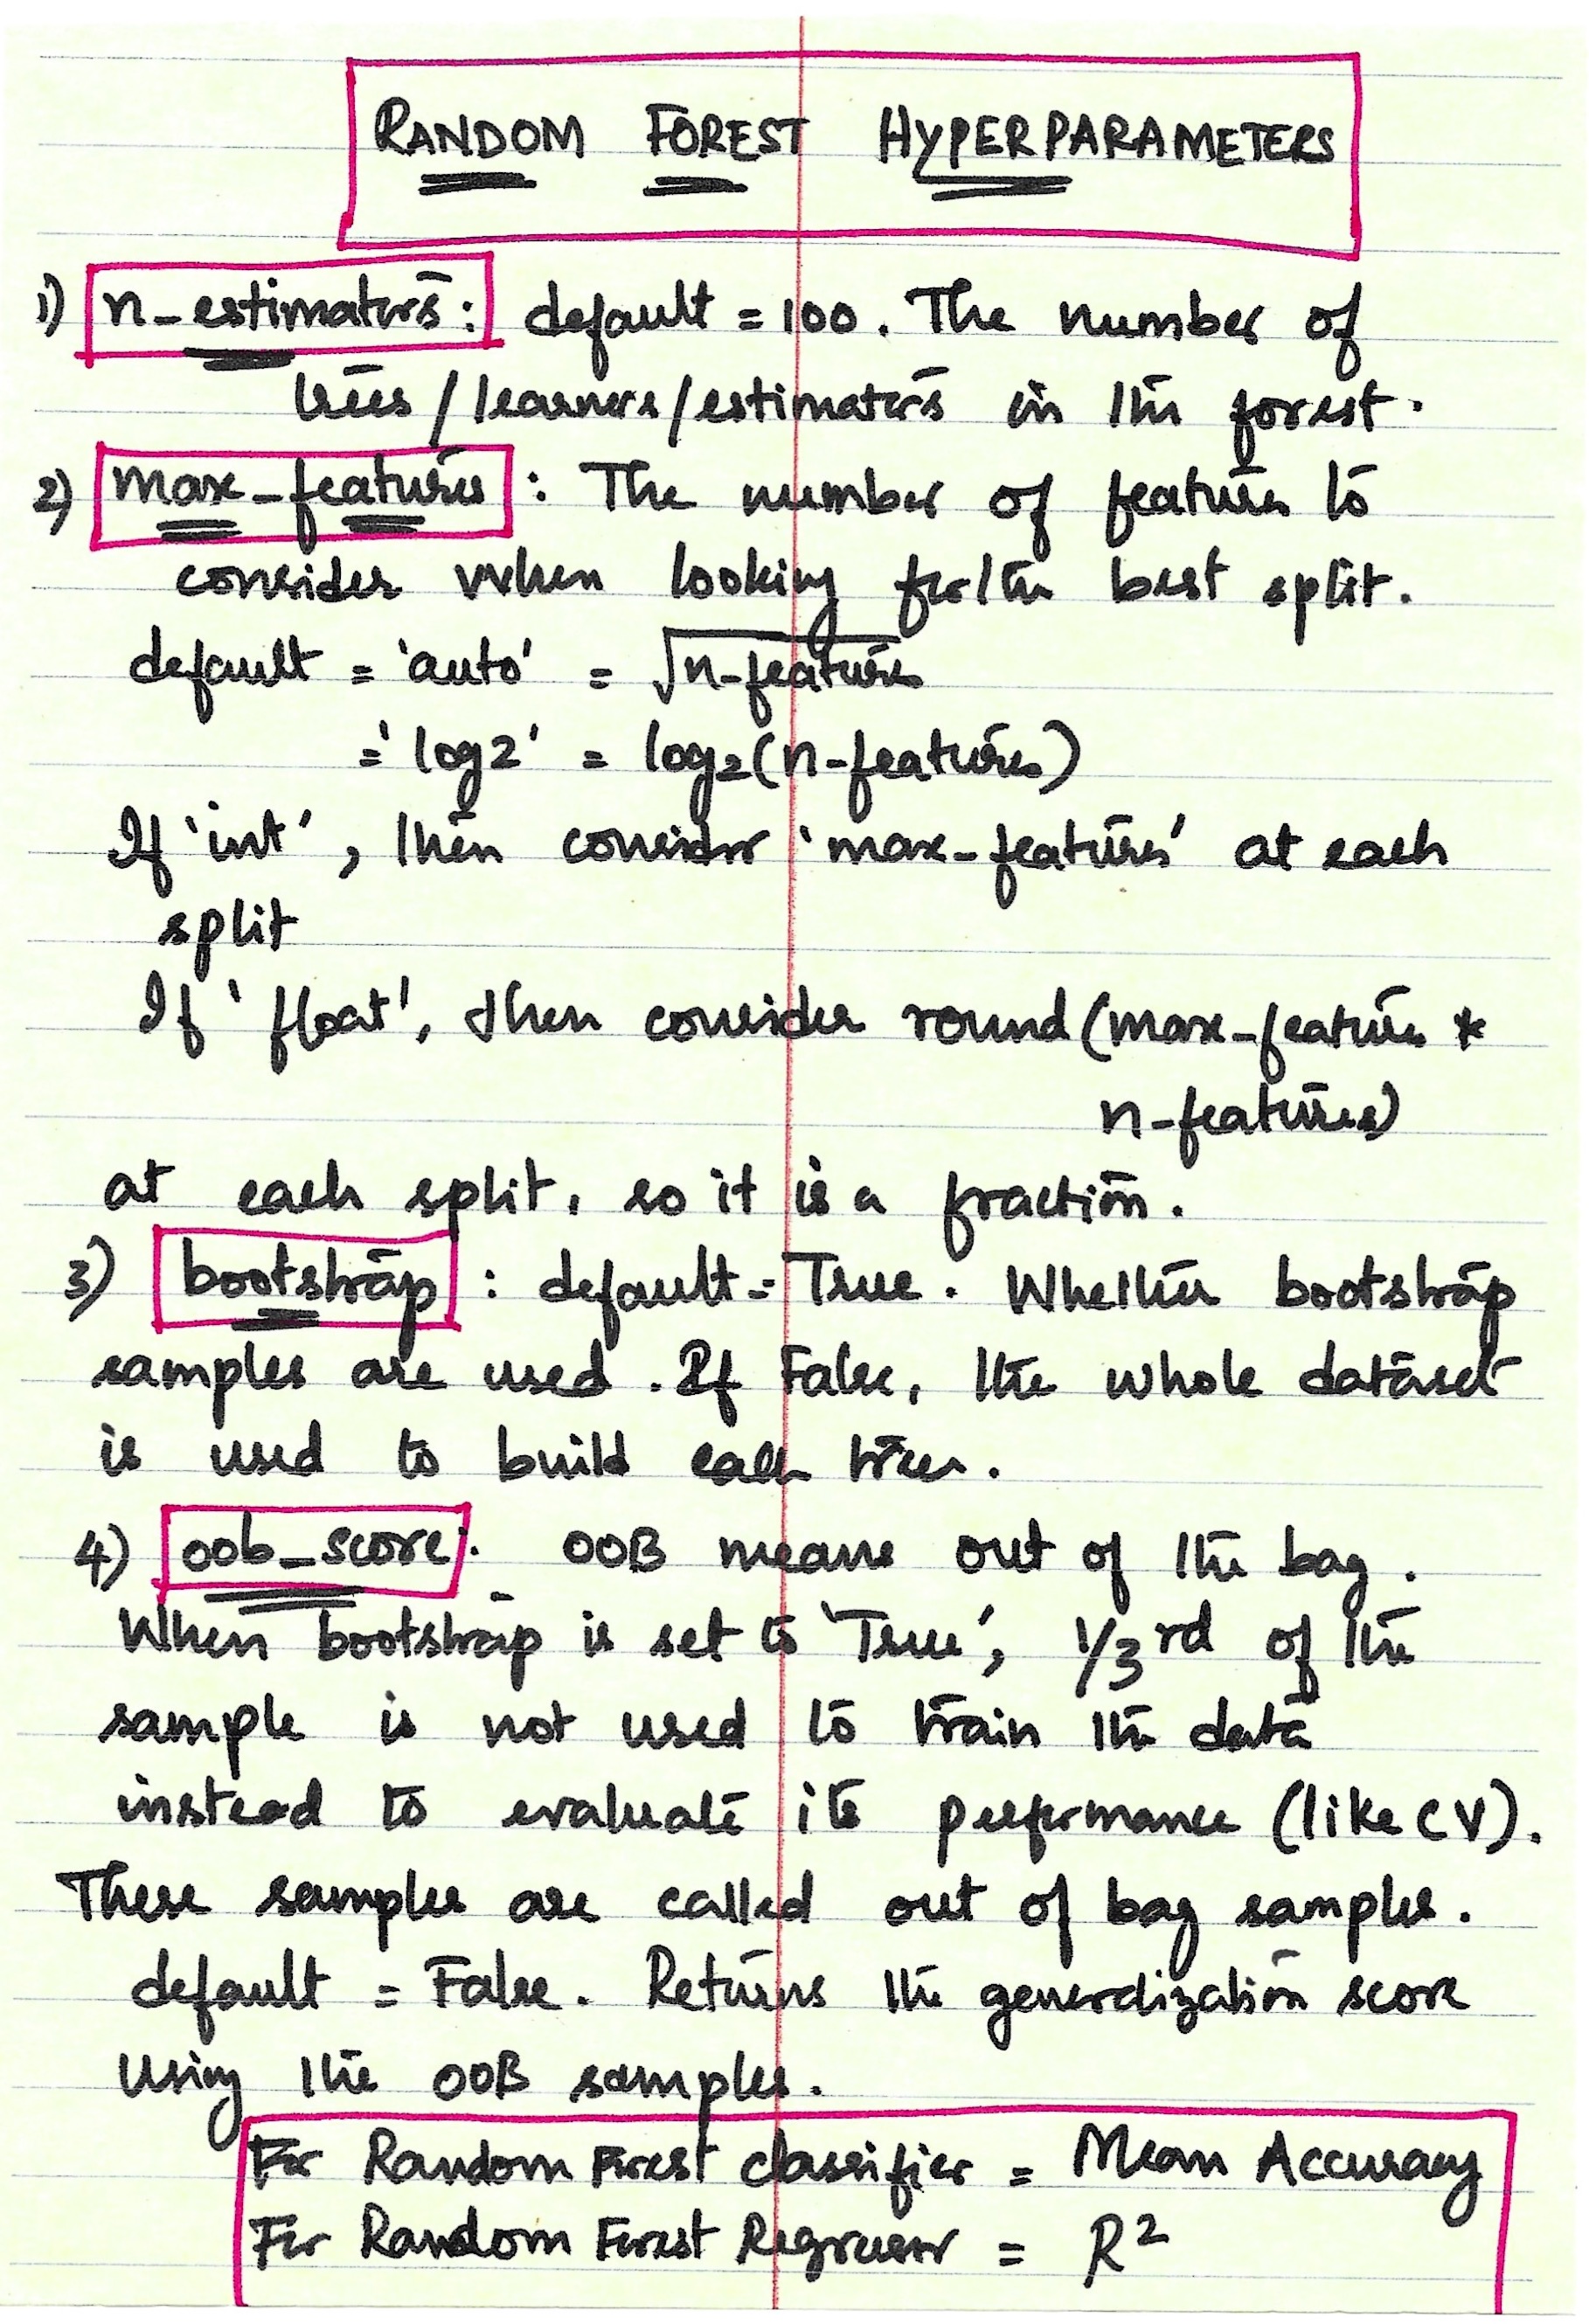 RANDOM FOREST HYPERPARAMETERS
1) n_estimators: default = 100. The number of
trees / learners / estimators in the forest.
2) max_features : The number of features to
consider when looking for the best split.
default = 'auto' = √n-features
= 'log2' = log₂(n-features)
If 'int', then consider 'max-features' at each
split
If 'float', then consider round(max-features *
n-features)
at each split, so it is a fraction.
3) bootstrap : default = True. Whether bootstrap
samples are used. If False, the whole dataset
is used to build each tree.
4) oob_score: OOB means out of the bag.
When bootstrap is set to 'True', 1/3rd of the
sample is not used to train the data
instead to evaluate its performance (like CV).
These samples are called out of bag samples.
default = False. Returns the generalization score
using the OOB samples.
For Random Forest classifier = Mean Accuracy
For Random Forest Regressor = R²